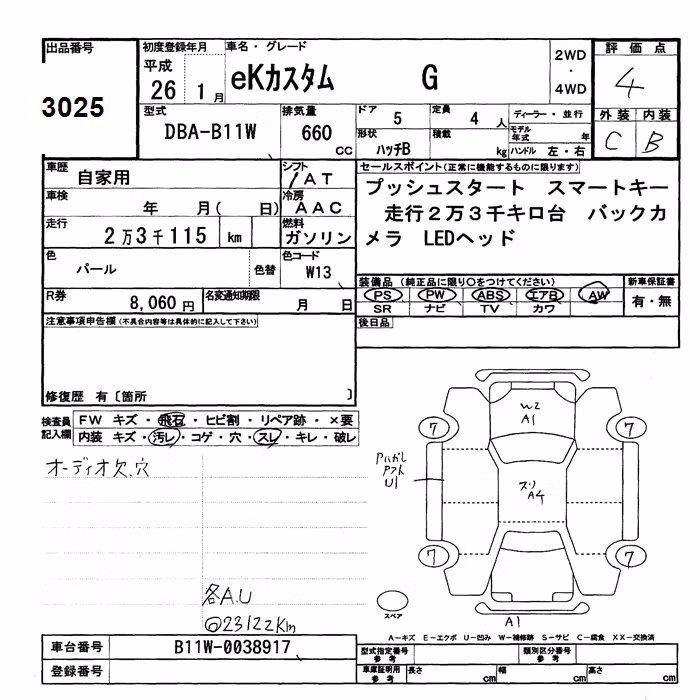 出品番号
3025
初度登録年月
平成
26 1 月
車名・グレード
eKカスタム G
2WD
・
4WD
評価点
4
外装 内装
C B
型式
DBA-B11W
排気量
660
CC
ドア
5
定員
4 人
ディーラー・並行
形状
ハッチB
積載
kg
モデル年式 年
ハンドル 左・右
車歴
自家用
シフト
/AT
車検
年 月( 日)
冷房
AAC
走行
2万3千115 km
燃料
ガソリン
セールスポイント(正常に機能するものに限ります)
プッシュスタート スマートキー
走行2万3千キロ台 バックカ
メラ LEDヘッド
色
パール
色替
色コード
W13
装備品 (純正品に限り〇をつけてください)
PS PW ABS エアB AW
SR ナビ TV カワ
新車保証書
有・無
R券
8,060円
名変通知期限
月 日
後日品
注意事項申告欄(不具合内容等は具体的に記入して下さい)
修復歴 有〔箇所 〕
検査員
記入欄
FW キズ・飛石・ヒビ割・リペア跡・×要
内装 キズ・汚レ・コゲ・穴・スレ・キレ・破レ
オーディオ欠、穴
各A.U
@23122Km
W2
A1
7
7
アハガレ
アクト
U1
スリ
A4
7
7
スペア
A1
A-キズ E-エクボ U-凹み W-補修跡 S-サビ C-腐食 XX-交換済
車台番号
B11W-0038917
登録番号
型式指定番号
参考
類別区分番号
参考
車庫証明用
参考
長さ cm
幅 cm
高さ cm